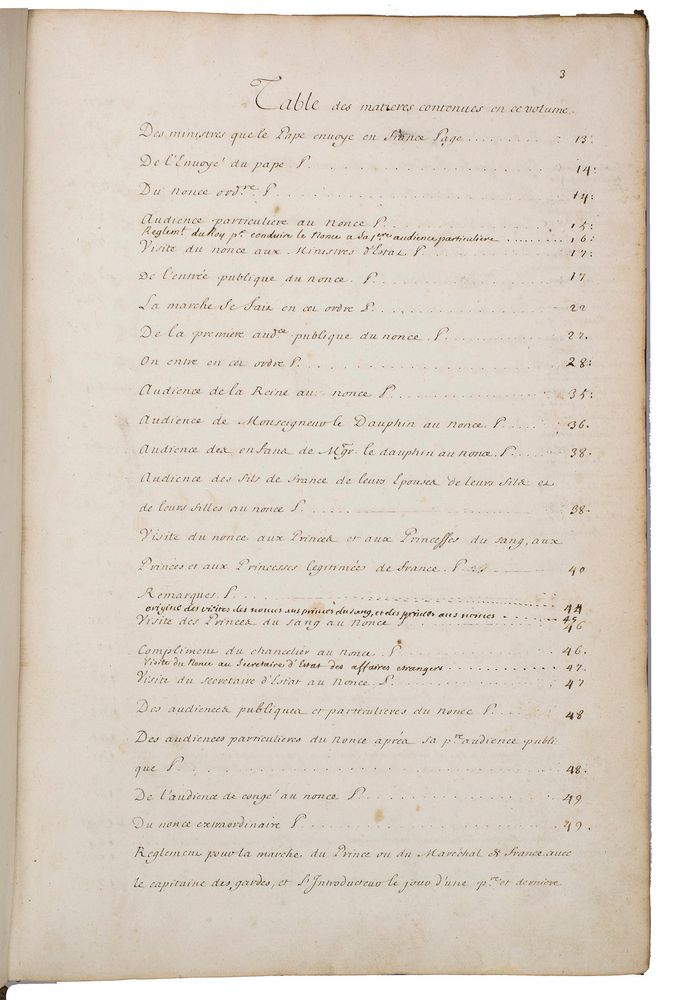 3
Table des matieres contenues en ce volume.
Des ministres que le Pape envoye en france Page ......... 13:
De l'Envoyé du pape. P. ......... 14:
Du nonce ord.re P ......... 14:
Audience particuliere au Nonce P. ......... 15:
Reglemt. du Roy pr. conduire le Nonce a sa 1ere audience particuliere ......... 16:
Visite du nonce aux Ministres d'Estat P ......... 17:
De l'entrée publique du nonce. P. ......... 17
La marche se fait en cet ordre P. ......... 22
De la premiere aud.ce publique du nonce. P. ......... 27.
On entre en cet ordre P. ......... 28:
Audience de la Reine au nonce P. ......... 35:
Audience de Monseigneur le Dauphin au nonce. P. ......... 36.
Audience des enfans de Mgr. le dauphin au nonce. P. ......... 38.
Audience des fils de france de leurs Epouses de leurs fils et
de leurs filles au nonce P. ......... 38.
Visite du nonce aux Princes et aux Princesses du sang, aux
Princes et aux Princesses legitimées de france. P ......... 40
Remarques. P. ......... 44
origine des visites des nonces aux princes du sang, et des princes aux nonces ......... 45
Visite des Princes du sang au Nonce ......... 46
Compliment du chancelier au nonce. P ......... 46.
Visite du Nonce au Secretaire d'Estat des affaires etrangers ......... 47.
Visite du secretaire d'Estat au Nonce P. ......... 47
Des audiences publiques et particulieres du nonce P. ......... 48
Des audiences particulieres du nonce aprés sa p.re audience publi-
que P. ......... 48.
De l'audience de congé au nonce P. ......... 49
Du nonce extraordinaire P ......... 49.
Reglement pour la marche du Prince ou du Maréchal de france avec
le capitaine des gardes, et l'Introducteur le jour d'une p.re et derniere